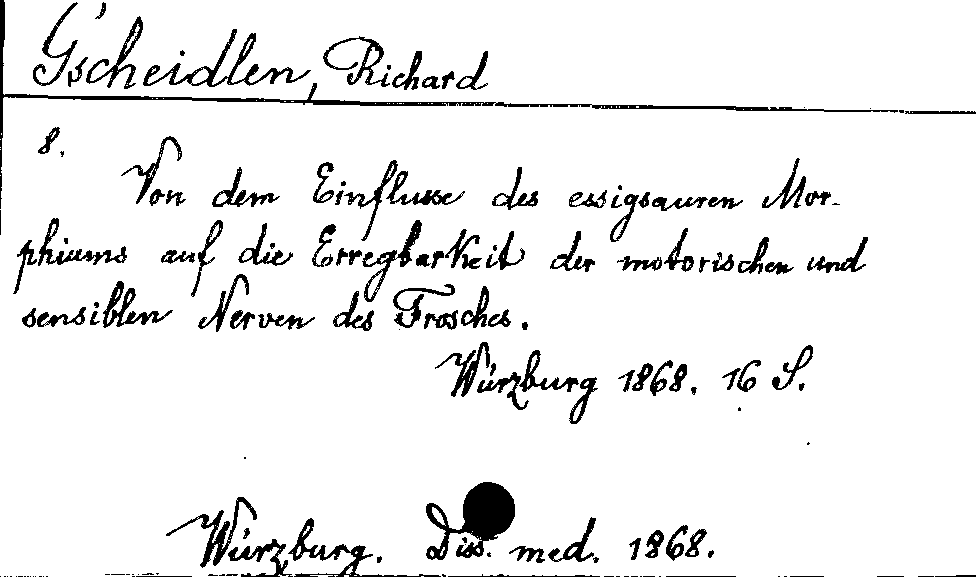 Gscheidlen, Richard
8.
Von dem Einflusse des essigsauren Mor-
phiums auf die Erregbarkeit der motorischen und
sensiblen Nerven des Frosches.
Würzburg 1868. 16 S.
Würzburg. Diss. med. 1868.